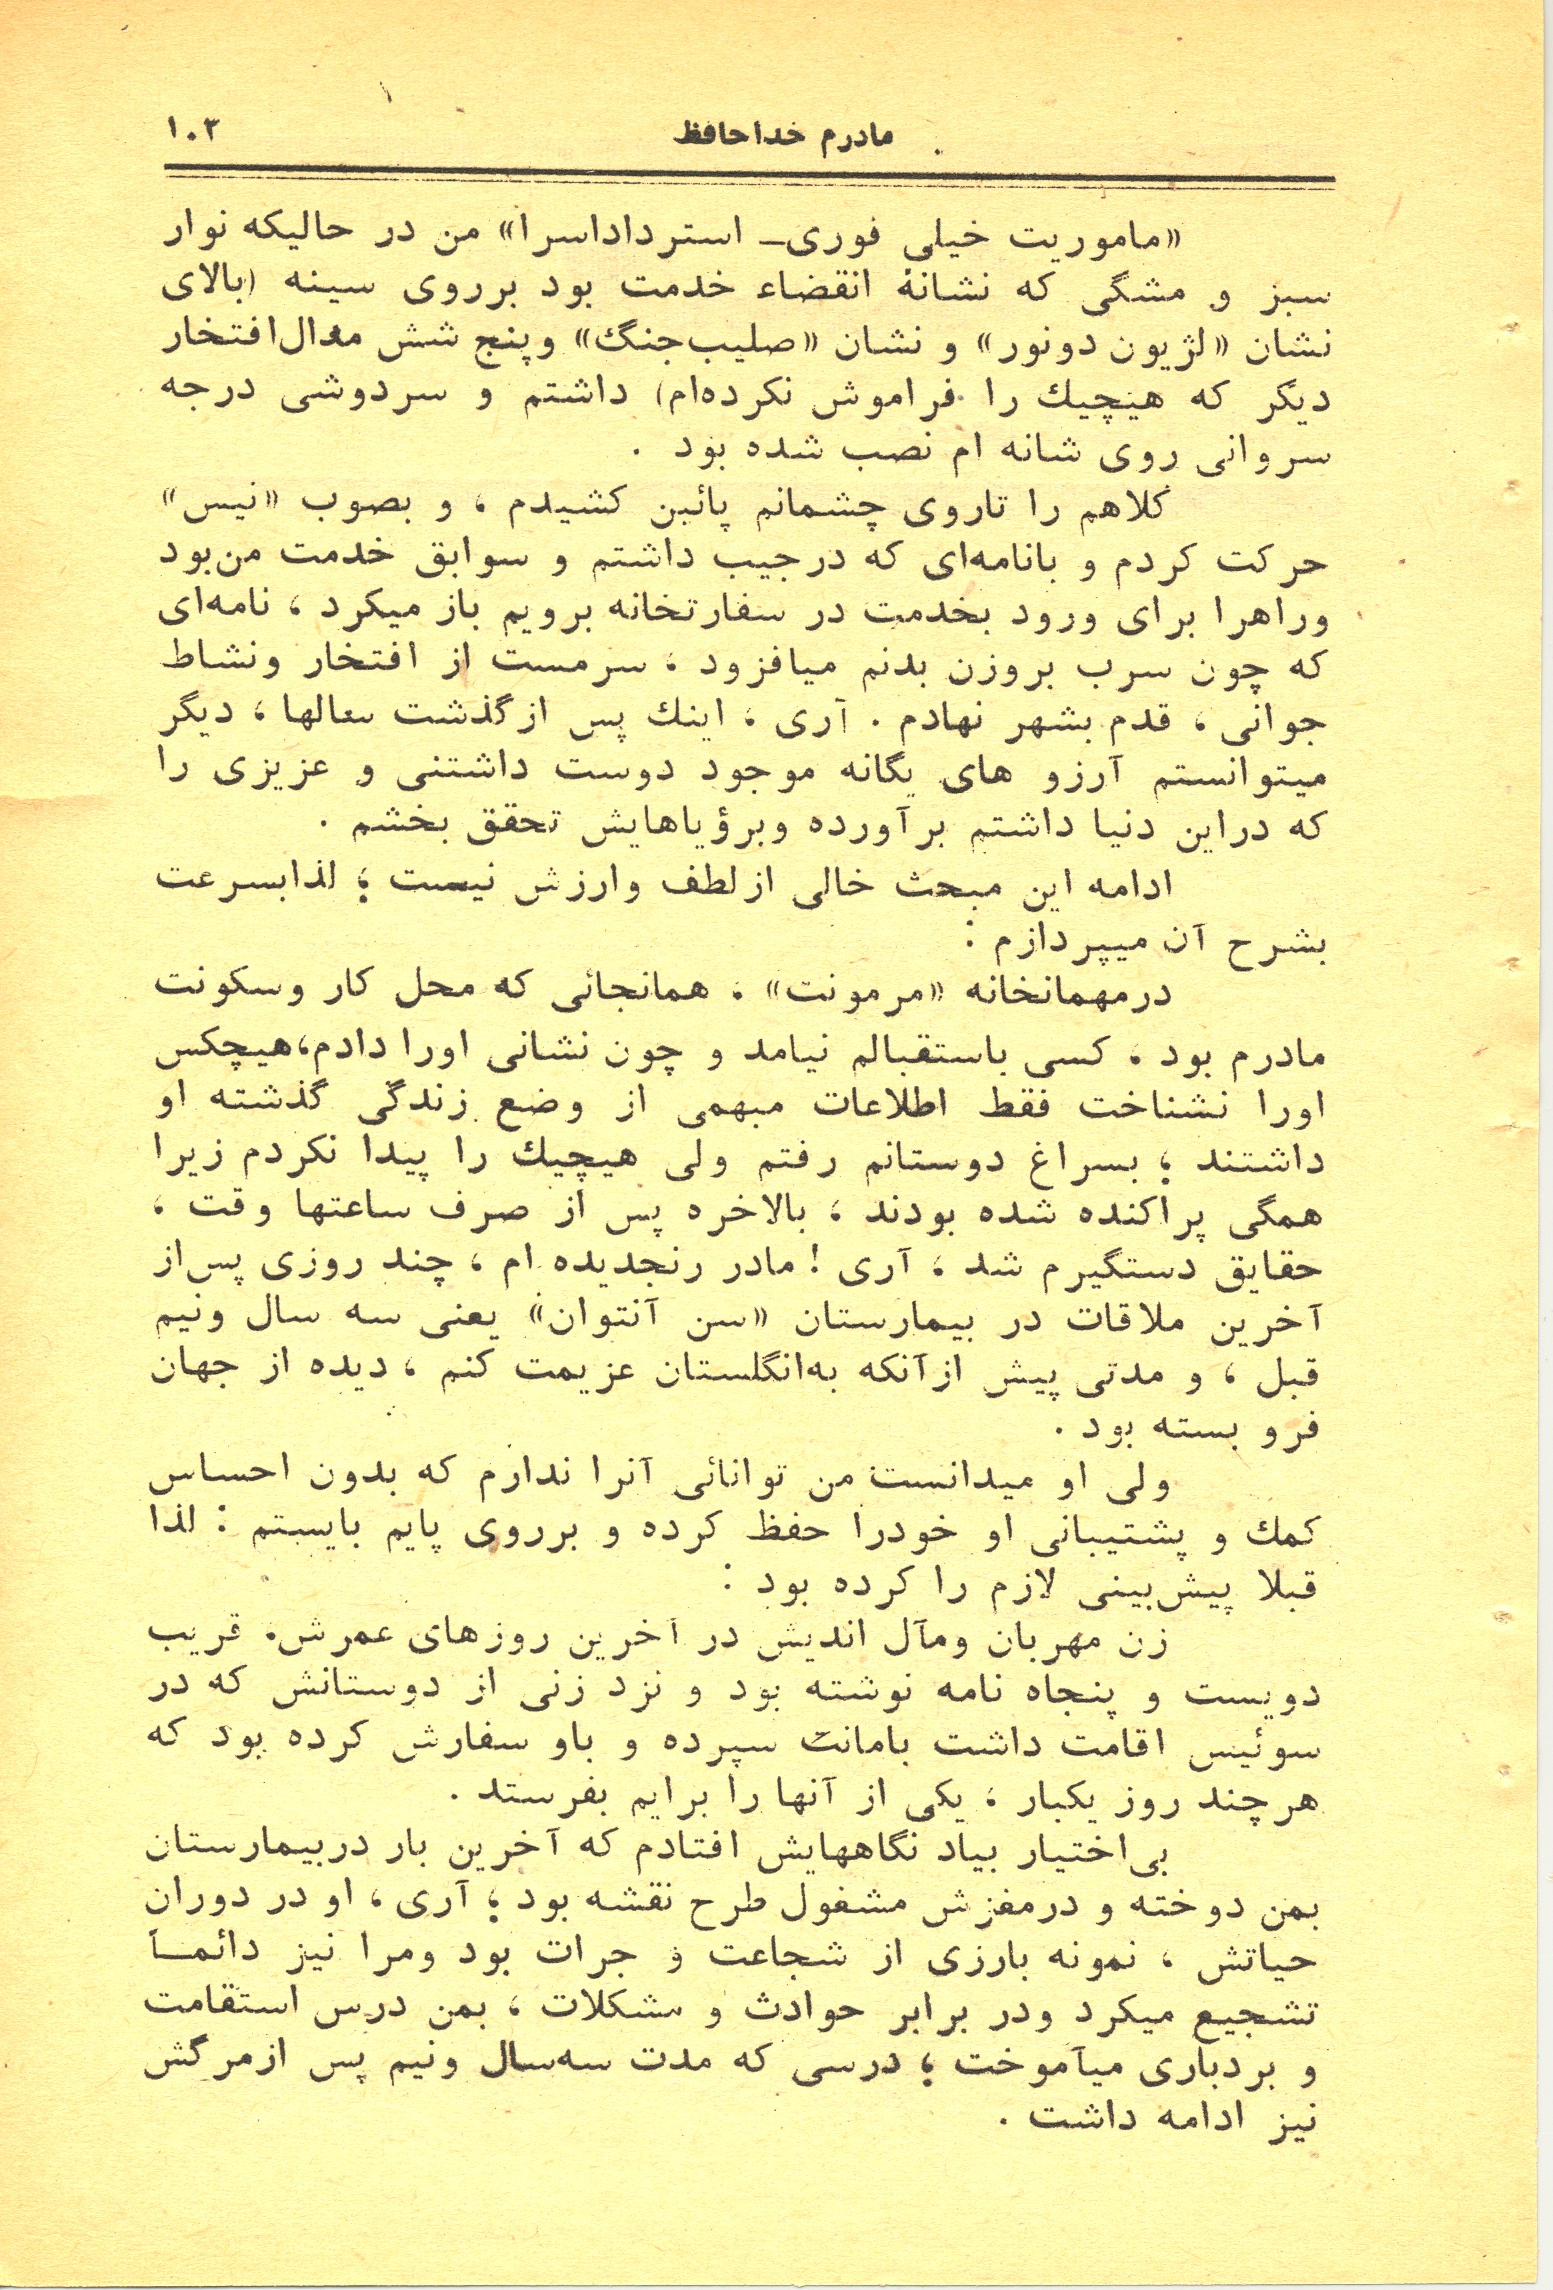 مادرم خداحافظ ۱۰۳
«ماموریت خیلی فوری_ استرداداسرا» من در حالیکه نوار
سبز و مشگی که نشانهٔ انقضاء خدمت بود برروی سینه (بالای
نشان «لژیون دونور» و نشان «صلیب‌جنگ» وپنج شش مدال‌افتخار
دیگر که هیچیك را فراموش نکرده‌ام) داشتم و سردوشی درجه
سروانی روی شانه ام نصب شده بود .
کلاهم را تاروی چشمانم پائین کشیدم ، و بصوب «نیس»
حرکت کردم و بانامه‌ای که درجیب داشتم و سوابق خدمت من‌بود
وراهرا برای ورود بخدمت در سفارتخانه برویم باز میکرد ، نامه‌ای
که چون سرب بروزن بدنم میافزود ، سرمست از افتخار ونشاط
جوانی ، قدم بشهر نهادم . آری ، اینك پس ازگذشت سالها ، دیگر
میتوانستم آرزو های یگانه موجود دوست داشتنی و عزیزی را
که دراین دنیا داشتم برآورده وبرؤیاهایش تحقق بخشم .
ادامه این مبحث خالی ازلطف وارزش نیست ؛ لذابسرعت
بشرح آن میپردازم :
درمهمانخانه «مرمونت» ، همانجائی که محل کار وسکونت
مادرم بود ، کسی باستقبالم نیامد و چون نشانی اورا دادم،هیچکس
اورا نشناخت فقط اطلاعات مبهمی از وضع زندگی گذشته او
داشتند ؛ بسراغ دوستانم رفتم ولی هیچیك را پیدا نکردم زیرا
همگی پراکنده شده بودند ، بالاخره پس از صرف ساعتها وقت ،
حقایق دستگیرم شد ، آری ! مادر رنجدیده ام ، چند روزی پس‌از
آخرین ملاقات در بیمارستان «سن آنتوان» یعنی سه سال ونیم
قبل ، و مدتی پیش ازآنکه به‌انگلستان عزیمت کنم ، دیده از جهان
فرو بسته بود .
ولی او میدانست من توانائی آنرا ندارم که بدون احساس
کمك و پشتیبانی او خودرا حفظ کرده و برروی پایم بایستم : لذا
قبلا پیش‌بینی لازم را کرده بود :
زن مهربان ومآل اندیش در آخرین روزهای عمرش. قریب
دویست و پنجاه نامه نوشته بود و نزد زنی از دوستانش که در
سوئیس اقامت داشت بامانت سپرده و باو سفارش کرده بود که
هرچند روز یکبار ، یکی از آنها را برایم بفرستد .
بی‌اختیار بیاد نگاههایش افتادم که آخرین بار دربیمارستان
بمن دوخته و درمغزش مشغول طرح نقشه بود ؛ آری ، او در دوران
حیاتش ، نمونه بارزی از شجاعت و جرات بود ومرا نیز دائمـاً
تشجیع میکرد ودر برابر حوادث و مشکلات ، بمن درس استقامت
و بردباری میآموخت ؛ درسی که مدت سه‌سال ونیم پس ازمرگش
نیز ادامه داشت .